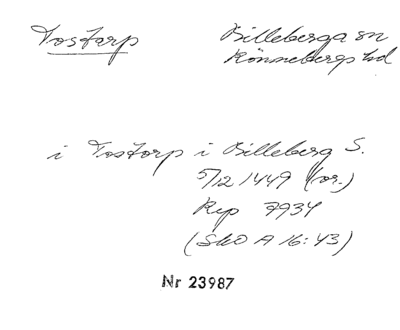 Tostarp
Billeberga sn
Rönnebergs hd
i Tostorp i Billeberg S.
5/12 1449 (or.)
Rep 7934
(SkO A 16:43)
Nr 23987